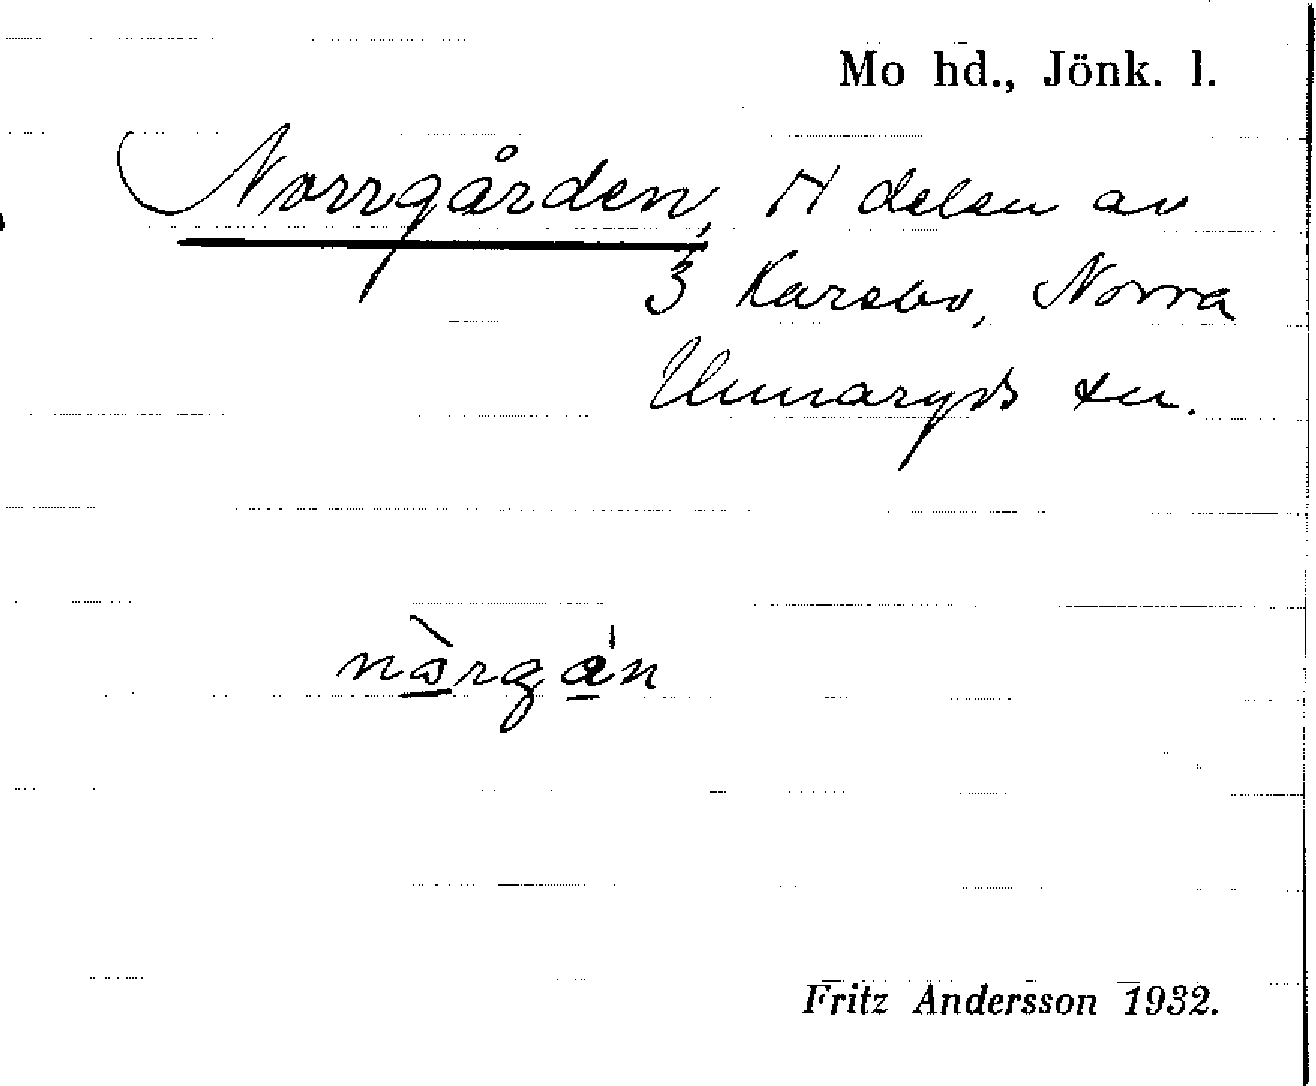 Mo hd., Jönk. l.
Norrgården, H delen av
3 Karsbo, Norra
Unnaryds sn.
nàrgán
Fritz Andersson 1932.